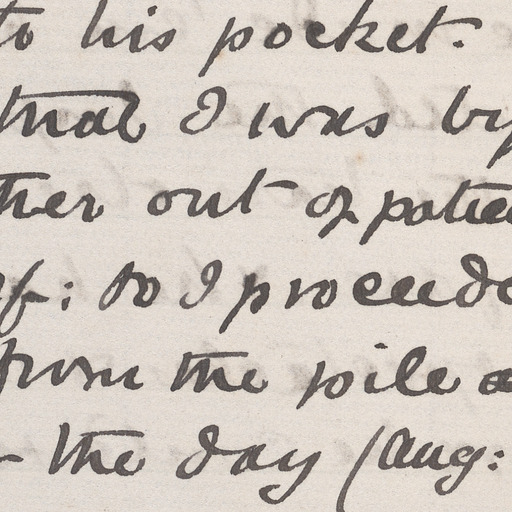 to his pocket.
that I was by
ther out of patie
lf; so I proceede
from the pile a
the day (Aug: